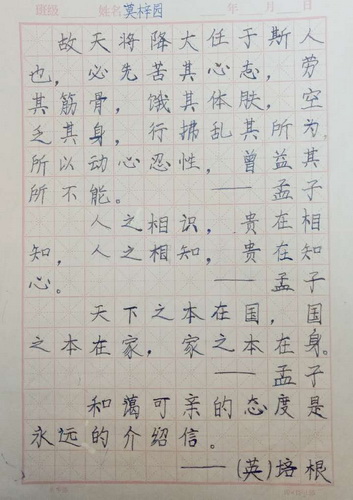 班级 姓名 莫梓园 年 月 日
故天将降大任于斯人
也，必先苦其心志，劳
其筋骨，饿其体肤，空
乏其身，行拂乱其所为。
所以动心忍性，曾益其
所不能。 —— 孟子
人之相识，贵在相
知，人之相知，贵在知
心。 —— 孟子
天下之本在国，国
之本在家，家之本在身。
—— 孟子
和蔼可亲的态度是
永远的介绍信。
——(英)培根